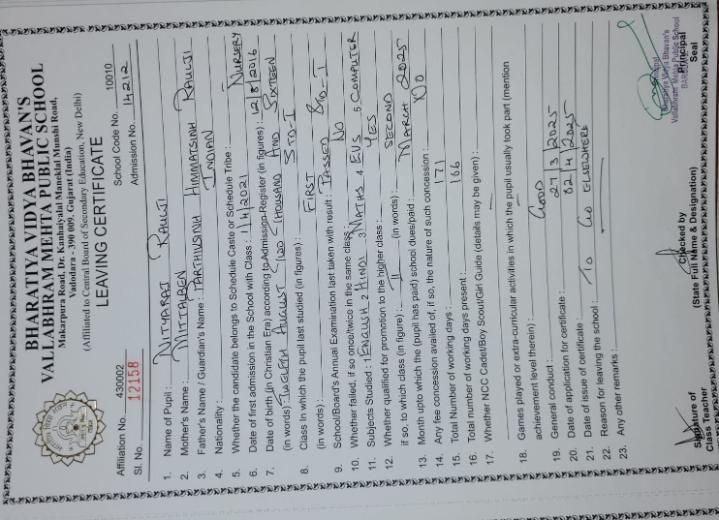 BHARATIYA VIDYA BHAVAN'S
VALLABHRAM MEHTA PUBLIC SCHOOL
Makarpura Road, Dr. Kanhaiyalal Maneklal Munshi Road,
Vadodara - 390 009. Gujarat (India)
(Affiliated to Central Board of Secondary Education, New Delhi)
LEAVING CERTIFICATE
Affiliation No. 430002 School Code No. 10010
Sl. No. 12158 Admission No. 14212
1. Name of Pupil : NITYARAJ RAULJI
2. Mother's Name : MITTALBEN
3. Father's Name / Guardian's Name : PARTHIVSINH HIMMATSINH RAULJI
4. Nationality : INDIAN
5. Whether the candidate belongs to Schedule Caste or Schedule Tribe :
6. Date of first admission in the School with Class : 1/4/2021 NURSERY
7. Date of birth (in Christian Era) according to Admission Register (in figures) : 12/8/2016
(in words) TWELFTH AUGUST TWO THOUSAND AND SIXTEEN
8. Class In which the pupil last studied (in figures) : STD-I
(in words) : FIRST
9. School/Board's Annual Examination last taken with result : PASSED STD-I
10. Whether failed, if so once/twice in the same class : NO
11. Subjects Studied : 1 ENGLISH 2 HINDI 3 MATHS 4 EVS 5 COMPUTER
12. Whether qualified for promotion to the higher class : YES
if so, to which class (in figure) : II (in words) : SECOND
13. Month upto which the (pupil has paid) school dues/paid : MARCH 2025
14. Any fee concession availed of, if so, the nature of such concession : NO
15. Total Number of working days : 171
16. Total number of working days present : 166
17. Whether NCC Cadet/Boy Scout/Girl Guide (details may be given) :
18. Games played or extra-curricular activities in which the pupil usually took part (mention
achievement level therein) :
19. General conduct : GOOD
20. Date of application for certificate : 27/3/2025
21. Date of issue of certificate : 02/4/2025
22. Reason for leaving the school : TO GO ELSEWHERE
23. Any other remarks :
Signature of
Class Teacher
Checked by
(State Full Name & Designation)
Principal
Seal
Bharatiya Vidya Bhavan's
Vallabhram Mehta Public School